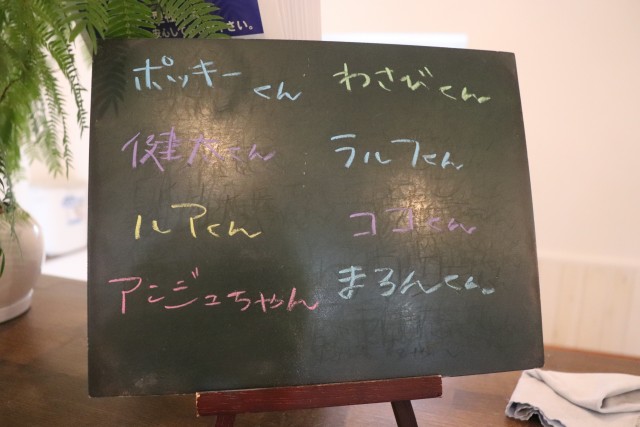 さい。
ポッキーくん
わさびくん
くん
ラルフくん
ルアくん
ココくん
アンジュちゃん
まろんくん